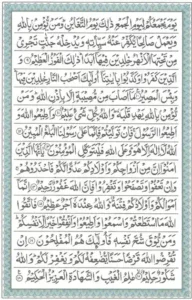 يَوْمَ يَجْمَعُكُمْ لِيَوْمِ الْجَمْعِ ذٰلِكَ يَوْمُ التَّغَابُنِ وَمَنْ يُّؤْمِنْ بِاللّٰهِ
وَيَعْمَلْ صَالِحًا يُّكَفِّرْ عَنْهُ سَيِّاٰتِهٖ وَيُدْخِلْهُ جَنّٰتٍ تَجْرِيْ
مِنْ تَحْتِهَا الْاَنْهٰرُ خٰلِدِيْنَ فِيْهَا اَبَدًا ذٰلِكَ الْفَوْزُ الْعَظِيْمُ
وَالَّذِيْنَ كَفَرُوْا وَكَذَّبُوْا بِاٰيٰتِنَا اُولٰٓئِكَ اَصْحٰبُ النَّارِ خٰلِدِيْنَ فِيْهَا
وَبِئْسَ الْمَصِيْرُ مَا اَصَابَ مِنْ مُّصِيْبَةٍ اِلَّا بِاِذْنِ اللّٰهِ وَمَنْ
يُّؤْمِنْ بِاللّٰهِ يَهْدِ قَلْبَهٗ وَاللّٰهُ بِكُلِّ شَيْءٍ عَلِيْمٌ وَاَطِيْعُوا اللّٰهَ
وَاَطِيْعُوا الرَّسُوْلَ فَاِنْ تَوَلَّيْتُمْ فَاِنَّمَا عَلٰى رَسُوْلِنَا الْبَلٰغُ الْمُبِيْنُ
اَللّٰهُ لَا اِلٰهَ اِلَّا هُوَ وَعَلَى اللّٰهِ فَلْيَتَوَكَّلِ الْمُؤْمِنُوْنَ يٰٓاَيُّهَا الَّذِيْنَ
اٰمَنُوْا اِنَّ مِنْ اَزْوَاجِكُمْ وَاَوْلَادِكُمْ عَدُوًّا لَّكُمْ فَاحْذَرُوْهُمْ
وَاِنْ تَعْفُوْا وَتَصْفَحُوْا وَتَغْفِرُوْا فَاِنَّ اللّٰهَ غَفُوْرٌ رَّحِيْمٌ اِنَّمَا
اَمْوَالُكُمْ وَاَوْلَادُكُمْ فِتْنَةٌ وَاللّٰهُ عِنْدَهٗ اَجْرٌ عَظِيْمٌ فَاتَّقُوا
اللّٰهَ مَا اسْتَطَعْتُمْ وَاسْمَعُوْا وَاَطِيْعُوْا وَاَنْفِقُوْا خَيْرًا لِّاَنْفُسِكُمْ
وَمَنْ يُّوْقَ شُحَّ نَفْسِهٖ فَاُولٰٓئِكَ هُمُ الْمُفْلِحُوْنَ اِنْ تُقْرِضُوا
اللّٰهَ قَرْضًا حَسَنًا يُّضٰعِفْهُ لَكُمْ وَيَغْفِرْ لَكُمْ وَاللّٰهُ
شَكُوْرٌ حَلِيْمٌ عٰلِمُ الْغَيْبِ وَالشَّهَادَةِ الْعَزِيْزُ الْحَكِيْمُ